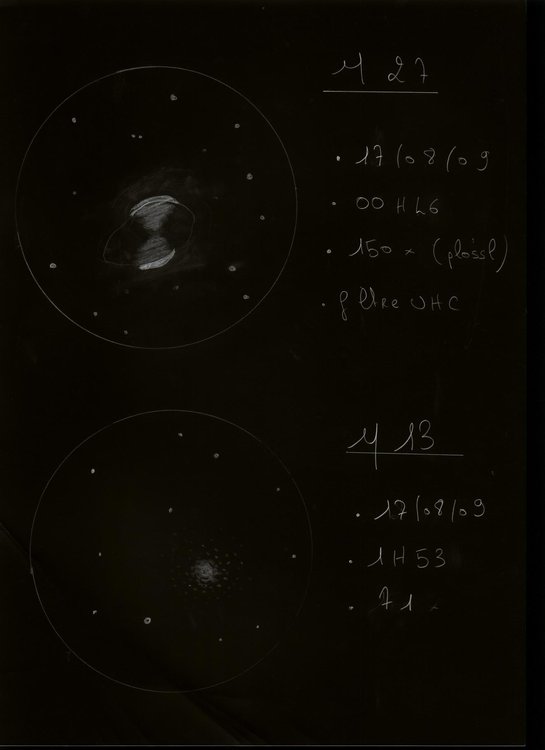 M 27
• 17/08/09
• 00 H 46
• 150 x (plössl)
• filtre UHC
M 13
• 17/08/09
• 1H53
• 71 x